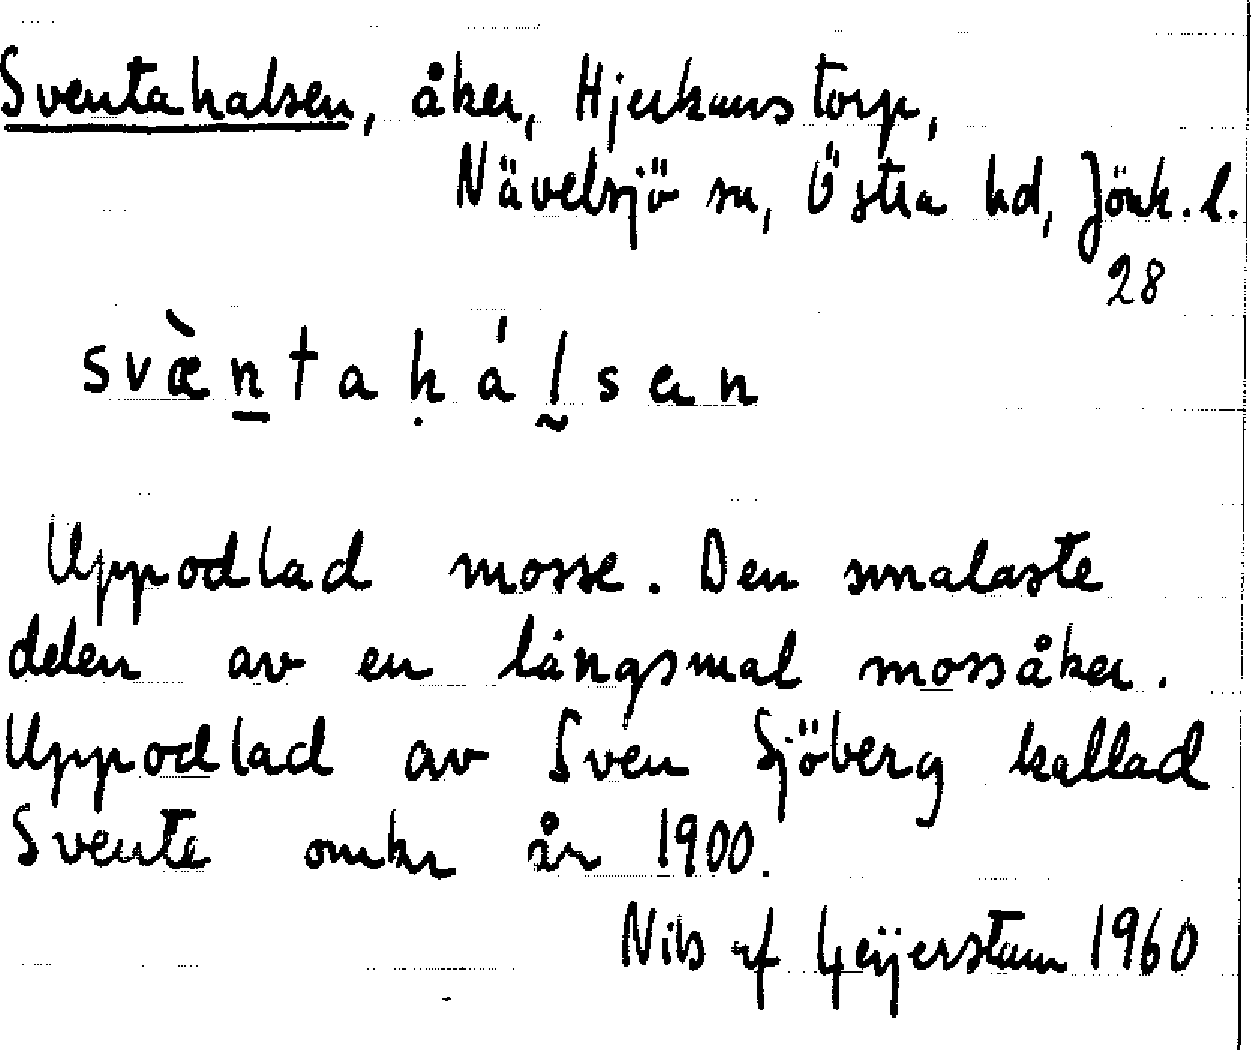 Sventahalsen, åker, Hjerkanstorp,
Nävelsjö sn, Östra hd, Jönk. l.
28
svæ̀n̲taḥáḽsen
Uppodlad mosse. Den smalaste
delen av en långsmal mossåker.
Uppodlad av Sven Sjöberg kallad
Svente omkr år 1900.
Nils af Geijerstam 1960